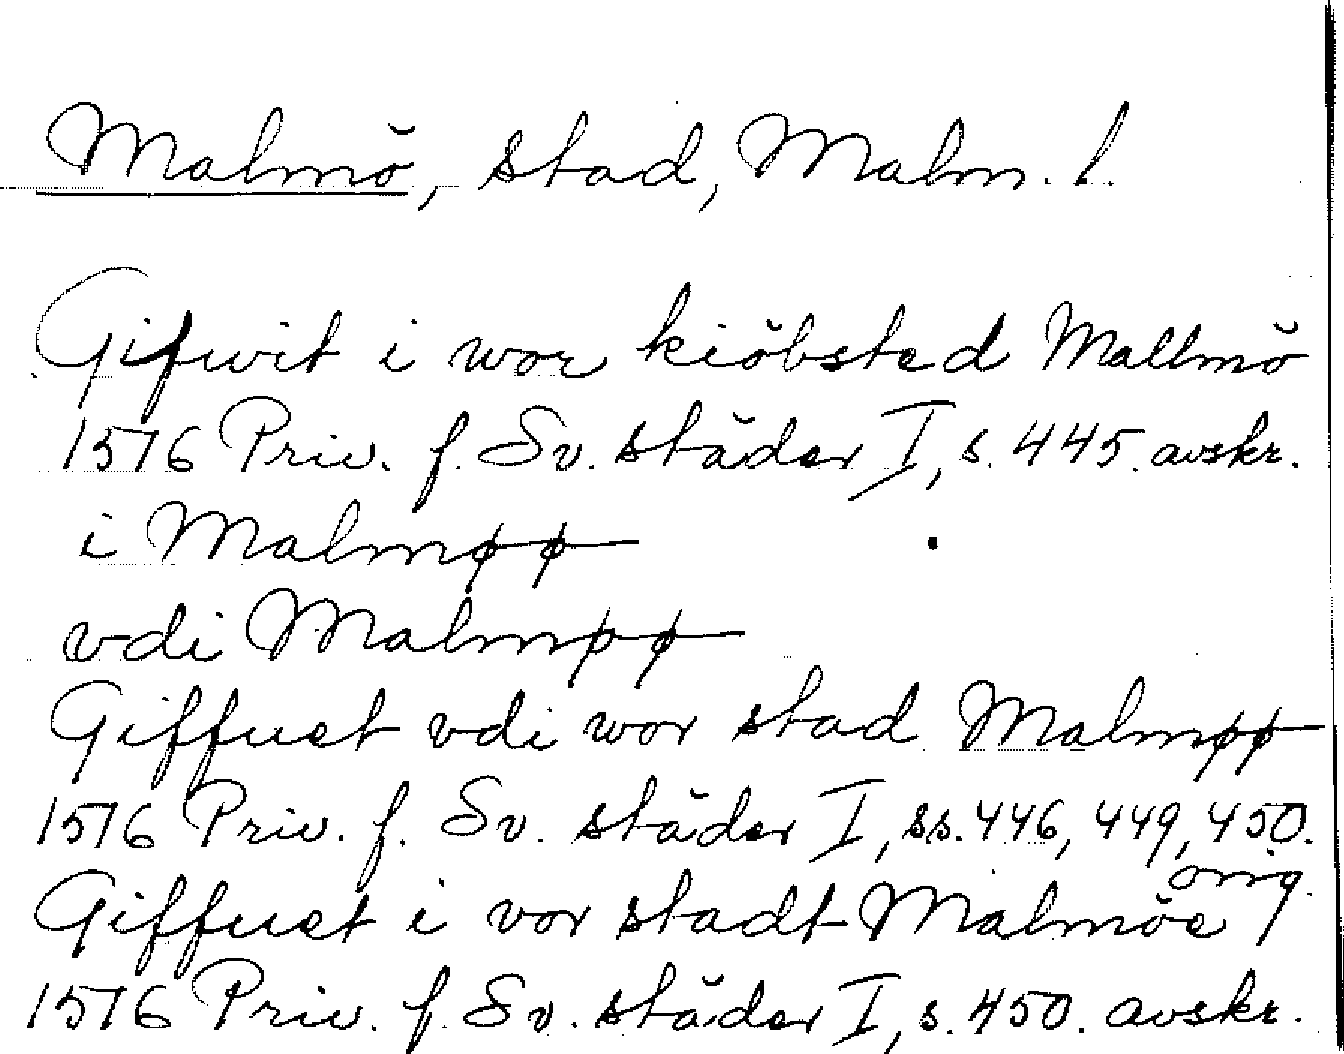 Malmö, stad, Malm. l.
Gifwit i wor kiöbsted Mallmö
1576 Priv. f. Sv. städer I, s. 445. avskr.
i Malmøø
vdi Malmøø
Giffuet vdi wor stad Malmøø
1576 Priv. f. Sv. städer I, ss. 446, 449, 450.
orig.
Giffuet i vor stadt Malmöe
1576 Priv. f. Sv. städer I, s. 450. avskr.